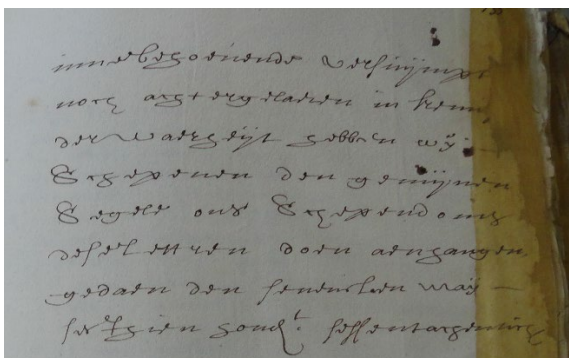 innebehoevende versuijmpt
noch achtergelaeten in kenn
der waerheijt hebben wij
Schepenen den gemijnen
Segele ons Schependoms
dese lettren doen aenhangen
gedaen den sevensten maij
sesthien hondt.